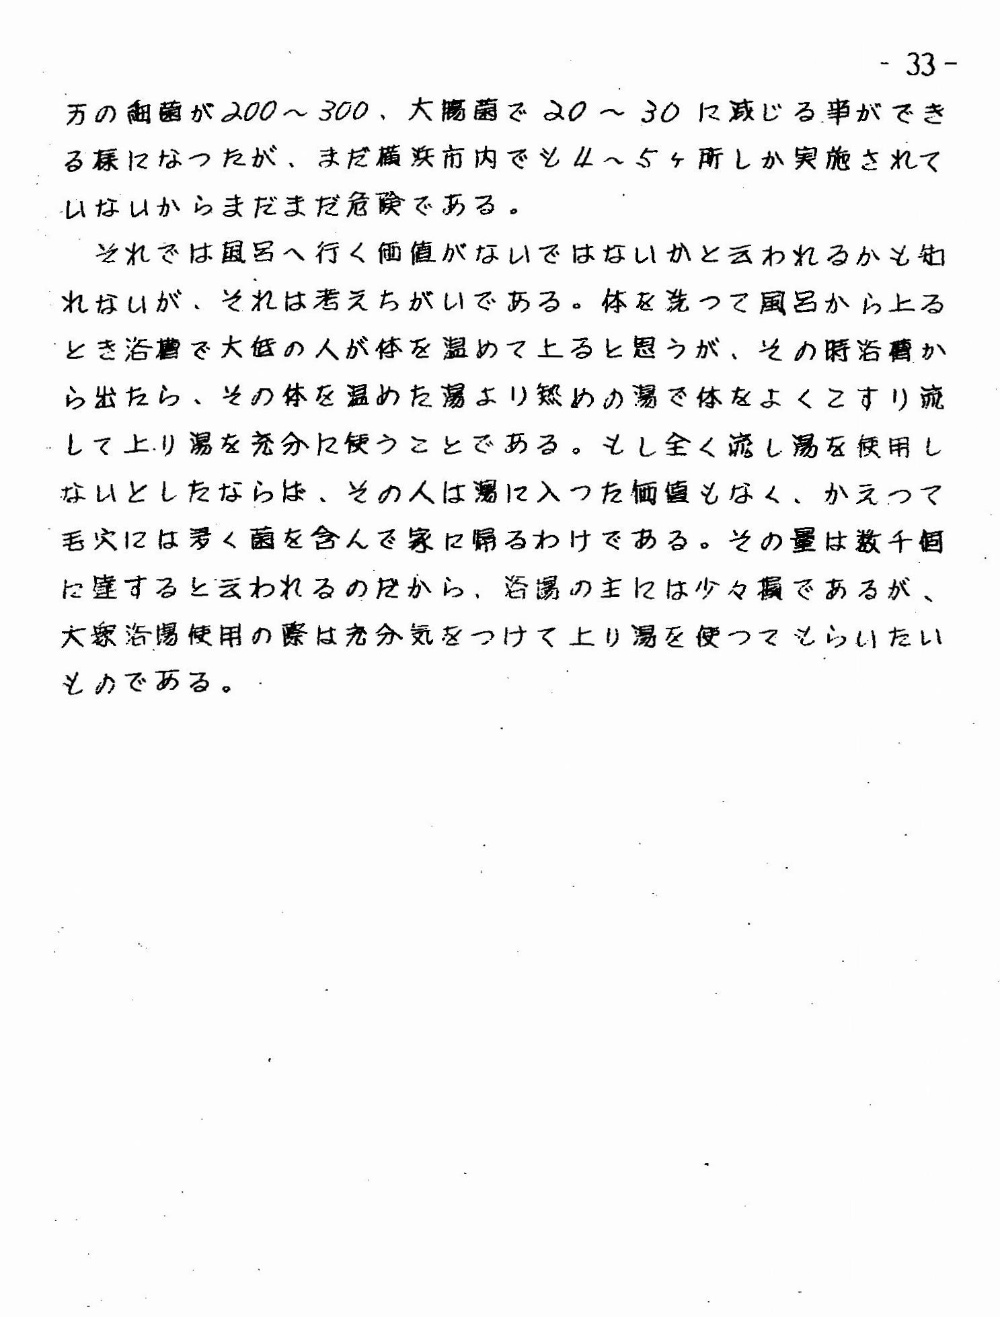 - 33 -
万の細菌が200～300、大腸菌で20～30に減じる事ができ
る様になつたが、まだ横浜市内でも4～5ヶ所しか実施されて
いないからまだまだ危険である。
それでは風呂へ行く価値がないではないかと云われるかも知
れないが、それは考えちがいである。体を洗つて風呂から上る
とき浴槽で大低の人が体を温めて上ると思うが、その時浴槽か
ら出たら、その体を温めた湯より熱めの湯で体をよくこすり流
して上り湯を充分に使うことである。もし全く流し湯を使用し
ないとしたならば、その人は湯に入つた価値もなく、かえつて
毛穴には多く菌を含んで家に帰るわけである。その量は数千個
に達すると云われるのだから、浴場の主には少々損であるが、
大衆浴場使用の際は充分気をつけて上り湯を使つてもらいたい
ものである。